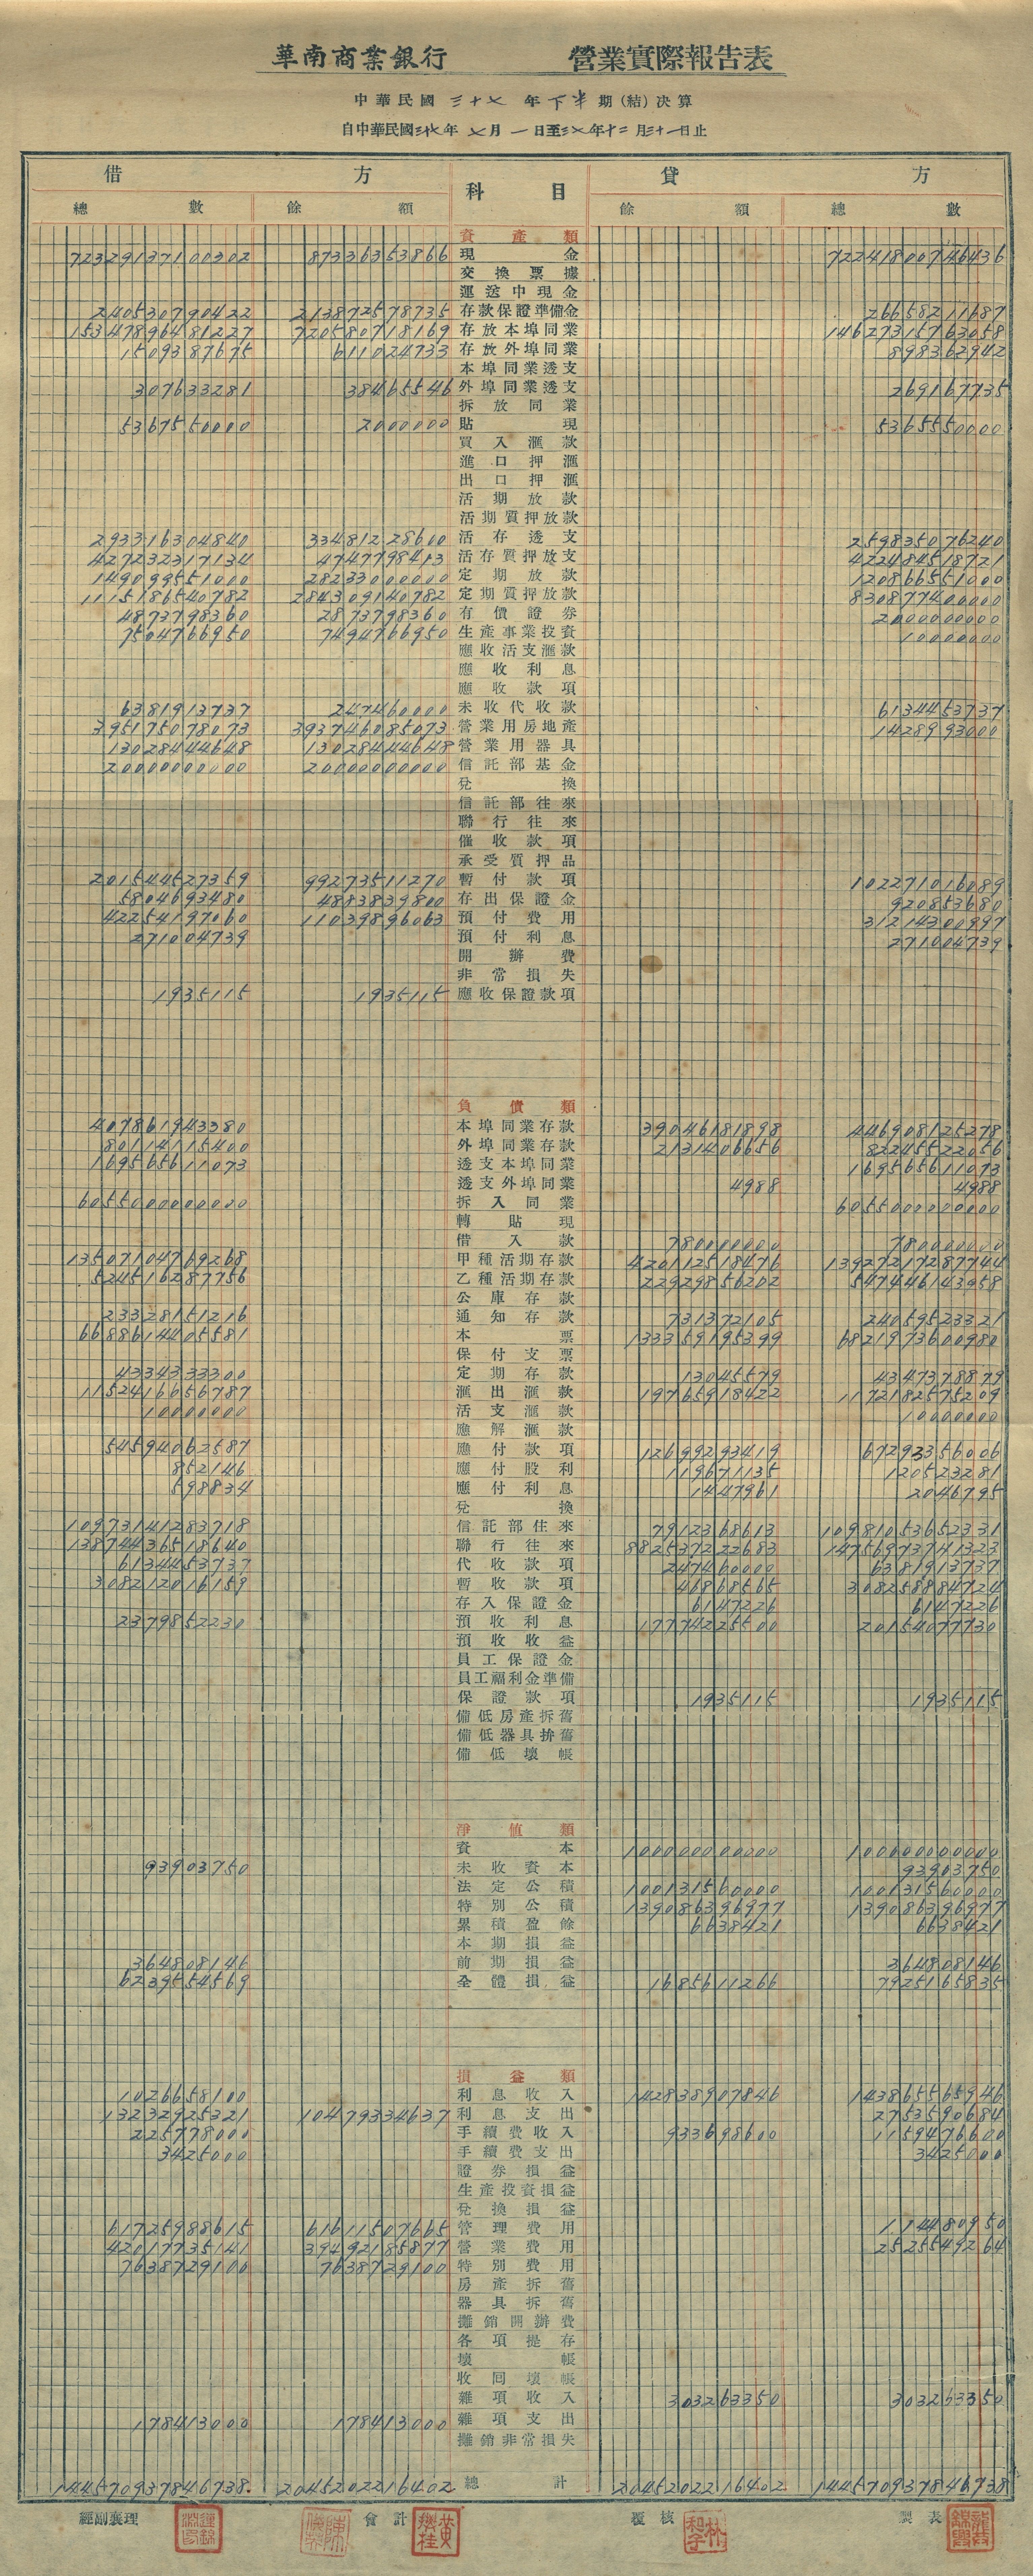 華南商業銀行 營業實際報告表
中華民國三十七年下半期(結)決算
自中華民國三十七年七月一日至三七年十二月三十一日止
借 方 科目 貸 方
總數 餘額 餘額 總數
資產類
72329137100302 87336353866 現金 72241800746436
交換票據
運送中現金
240530790422 213872578735 存款保證準備金 26658211687
15347896481227 720580718169 存放本埠同業 14627315763058
1509387675 611024733 存放外埠同業 898362942
本埠同業透支
307633281 38465546 外埠同業透支 269167735
拆放同業
5367550000 2000000 貼現 5365550000
買入滙款
進口押滙
出口押滙
活期放款
活期質押放款
293316304840 33481228600 活存透支 259835076240
427232317134 4747798413 活存質押放支 422484518721
149099551000 28233000000 定期放款 120866551000
1115186540782 284309140782 定期質押放款 830877400000
4873798360 2873798360 有價證券 2000000000
7504766950 7494766950 生產事業投資 10000000
應收活支滙款
應收利息
應收款項
6381913737 247460000 未收代收款 6134453737
395175078073 393746085073 營業用房地產 1428993000
13028444648 13028444648 營業用器具
20000000000 20000000000 信託部基金
兌換
信託部往來
聯行往來
催收款項
承受質押品
201544527359 99273511270 暫付款項 102271016089
5804693480 4883839800 存出保證金 920853680
42254197060 11039896063 預付費用 31214300997
271004739 預付利息 271004739
開辦費
非常損失
1935115 1935115 應收保證款項
負債類
407861943380 本埠同業存款 39046181898 446908125278
80114115400 外埠同業存款 2131406656 82245522056
169565611073 透支本埠同業 169565611073
透支外埠同業 4988 4988
6055000000000 拆入同業 6055000000000
轉貼現
借入款 780000000 780000000
13507104769268 甲種活期存款 420112518476 13927217287744
524516287756 乙種活期存款 22929856202 547446143958
公庫存款
23328151216 通知存款 731372105 24059523321
6688614405581 本票 133359195399 6821973600980
保付支票
4334333300 定期存款 13045579 4347378879
1152416656787 滙出滙款 19765918422 1172182575209
10000000 活支滙款 10000000
應解滙款
54594062587 應付款項 12699293419 67293356006
852146 應付股利 119671135 120523281
598834 應付利息 1447961 2046795
兌換
10973141283718 信託部往來 7912368613 10981053652331
13874436518640 聯行往來 882537222683 14756973741323
6134453737 代收款項 247460000 6381913737
308212016159 暫收款項 46868565 308258884724
存入保證金 6147226 6147226
2379852230 預收利息 17774225500 20154077730
預收收益
員工保證金
員工福利金準備
保證款項 1935115 1935115
備低房產拆舊
備低器具拚舊
備低壞帳
淨値類
資本 10000000000 10000000000
93903750 未收資本 93903750
法定公積 10013156000 10013156000
特別公積 139086396977 139086396977
累積盈餘 6638421 6638421
本期損益
364808146 前期損益 364808146
6239554569 全體損益 1685611266 7925165835
損益類
1026658100 利息收入 142838907846 143865565946
13232925321 10479334637 利息支出 2753590684
225778000 手續費收入 933698600 1159476600
3425000 手續費支出 3425000
證券損益
生產投資損益
兌換損益
61725988615 61611507665 管理費用 114480950
42017735141 39492185877 營業費用 2525549264
7638729100 7638729100 特別費用
房產拆舊
器具拆舊
攤銷開辦費
各項提存
壞帳
收回壞帳
雜項收入 303263350 303263350
178413000 178413000 雜項支出
攤銷非常損失
144570937846738 2045202216402 總計 2045202216402 144570937846738
經副襄理 會計 覆核 製表